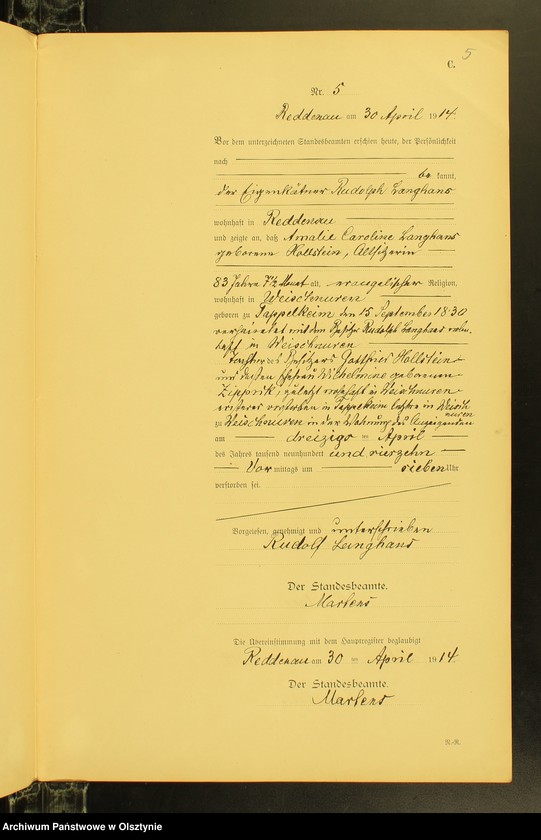 5
C.
Nr. 5
Reddenau am 30 April 1914.
Vor dem unterzeichneten Standesbeamten erschien heute, der Persönlichkeit
nach
be kannt,
der Eigenkätner Rudolph Langhans
wohnhaft in Reddenau
und zeigte an, daß Amalie Caroline Langhans
geborene Hollstein, Altsitzerin
83 Jahre 7½ Monat alt, evangelischer Religion,
wohnhaft in Weischnuren
geboren zu Tappelkeim den 15 September 1830
verheiratet mit dem Rudolph Langhans
haft in Weischnuren
Tochter des Besitzers Gottfried Hollstein
und dessen Ehefrau Wilhelmine geborenen
Zipprik, zuletzt wohnhaft in Weischnuren
ersterer verstorben in Tappelkeim letztere in Weisch
nuren
zu Weischnuren in der Wohnung des Anzeigenden
am dreizigs ten April
des Jahres tausend neunhundert und vierzehn
Vor mittags um sieben Uhr
verstorben sei.
Vorgelesen, genehmigt und unterschrieben
Rudolf Langhans
Der Standesbeamte.
Martens
Die Übereinstimmung mit dem Hauptregister beglaubigt
Reddenau am 30 ten April 1914.
Der Standesbeamte.
Martens
Archiwum Państwowe w Olsztynie